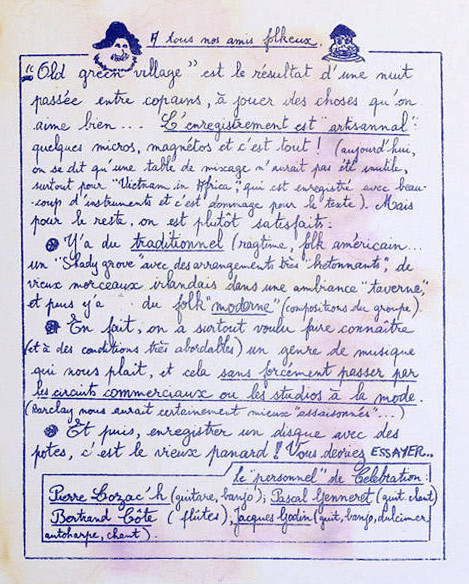 A tous nos amis folkeux.
"Old green village" est le résultat d'une nuit
passée entre copains, à jouer des choses qu'on
aime bien... L'enregistrement est "artisannal":
quelques micros, magnétos et c'est tout ! (aujourd'hui,
on se dit qu'une table de mixage n'aurait pas été inutile,
surtout pour "Vietnam in Africa", qui est enregistré avec beau-
-coup d'instruments et c'est dommage pour le texte). Mais
pour le reste, on est plutôt satisfaits:
Y'a du traditionnel (ragtime, folk américain...
un "Shady grove" avec des arrangements très "hétonnants", de
vieux morceaux irlandais dans une ambiance "taverne",
et puis y'a du folk "moderne" (compositions du groupe).
En fait, on a surtout voulu faire connaître
(et à des conditions très abordables) un genre de musique
qui nous plait, et cela sans forcément passer par
les circuits commerciaux ou les studios à la mode.
(Barclay nous aurait certainement mieux "assaisonnés"...)
Et puis, enregistrer un disque avec des
potes, c'est le vieux panard ! Vous devriez ESSAYER...
Le "personnel" de Celebration:
Pierre Lozac'h (guitare, banjo); Pascal Genneret (guit. chant)
Bertrand Côte (flûtes), Jacques Godin (guit, banjo, dulcimer
autoharpe, chant).